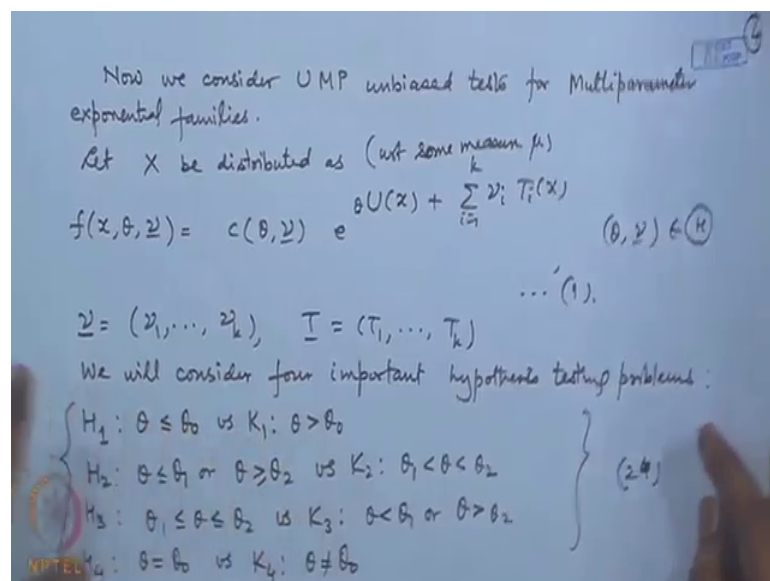 Now we consider UMP unbiased tests for Multiparameter
exponential families.
Let X be distributed as (wrt some measure μ)
f(x, θ, ν) = c(θ, ν) e^{θU(x) + Σ_{i=1}^{k} ν_i T_i(x)}   (θ, ν) ∈ Ⓗ
... (1).
ν = (ν_1, ..., ν_k), T = (T_1, ..., T_k)
We will consider four important hypothesis testing problems:
H_1: θ ≤ θ_0 vs K_1: θ > θ_0
H_2: θ ≤ θ_1 or θ ≥ θ_2 vs K_2: θ_1 < θ < θ_2
H_3: θ_1 ≤ θ ≤ θ_2 vs K_3: θ < θ_1 or θ > θ_2
H_4: θ = θ_0 vs K_4: θ ≠ θ_0
NPTEL